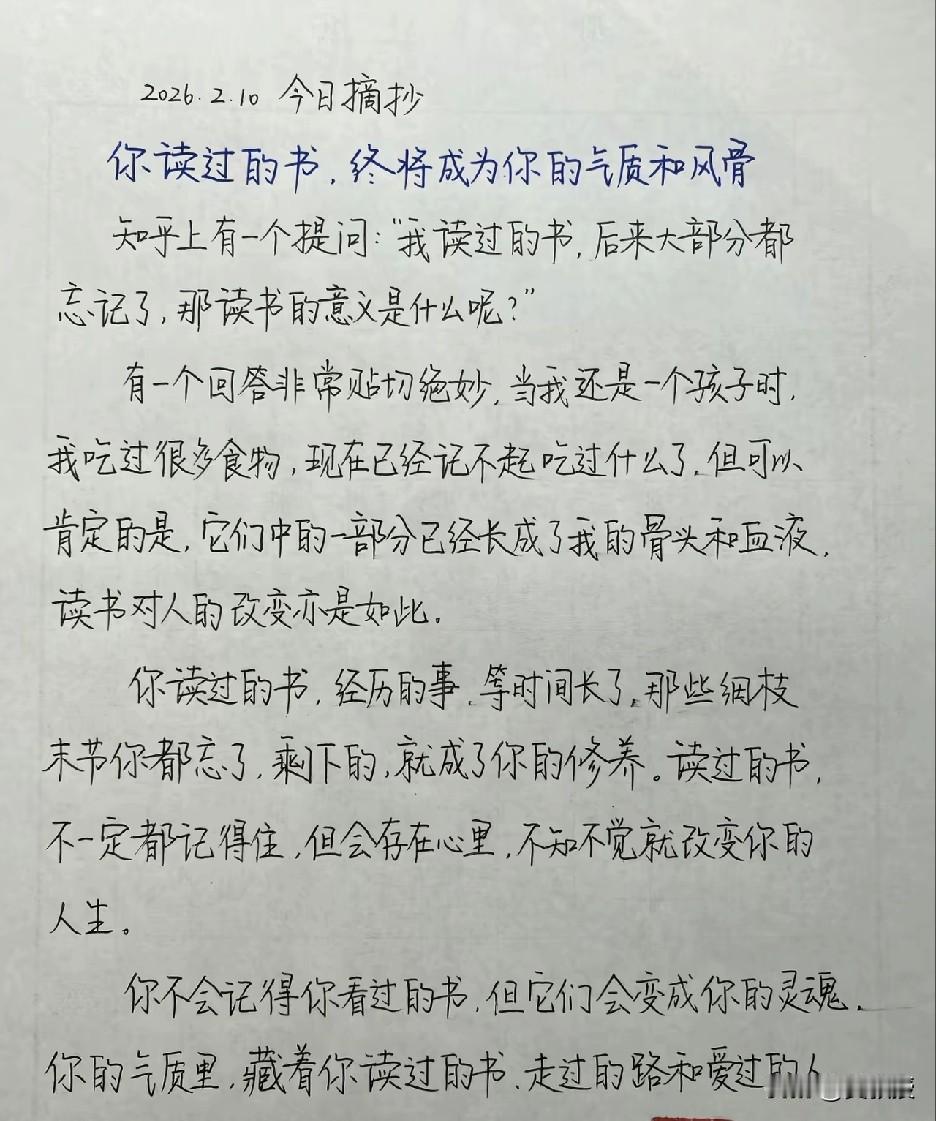 2026.2.10 今日摘抄
你读过的书，终将成为你的气质和风骨
知乎上有一个提问：“我读过的书，后来大部分都
忘记了，那读书的意义是什么呢？”
有一个回答非常贴切绝妙，当我还是一个孩子时，
我吃过很多食物，现在已经记不起吃过什么了，但可以
肯定的是，它们中的一部分已经长成了我的骨头和血液，
读书对人的改变亦是如此．
你读过的书，经历的事，等时间长了，那些细枝
末节你都忘了，剩下的，就成了你的修养。读过的书，
不一定都记得住，但会存在心里，不知不觉就改变你的
人生。
你不会记得你看过的书，但它们会变成你的灵魂．
你的气质里，藏着你读过的书，走过的路和爱过的人